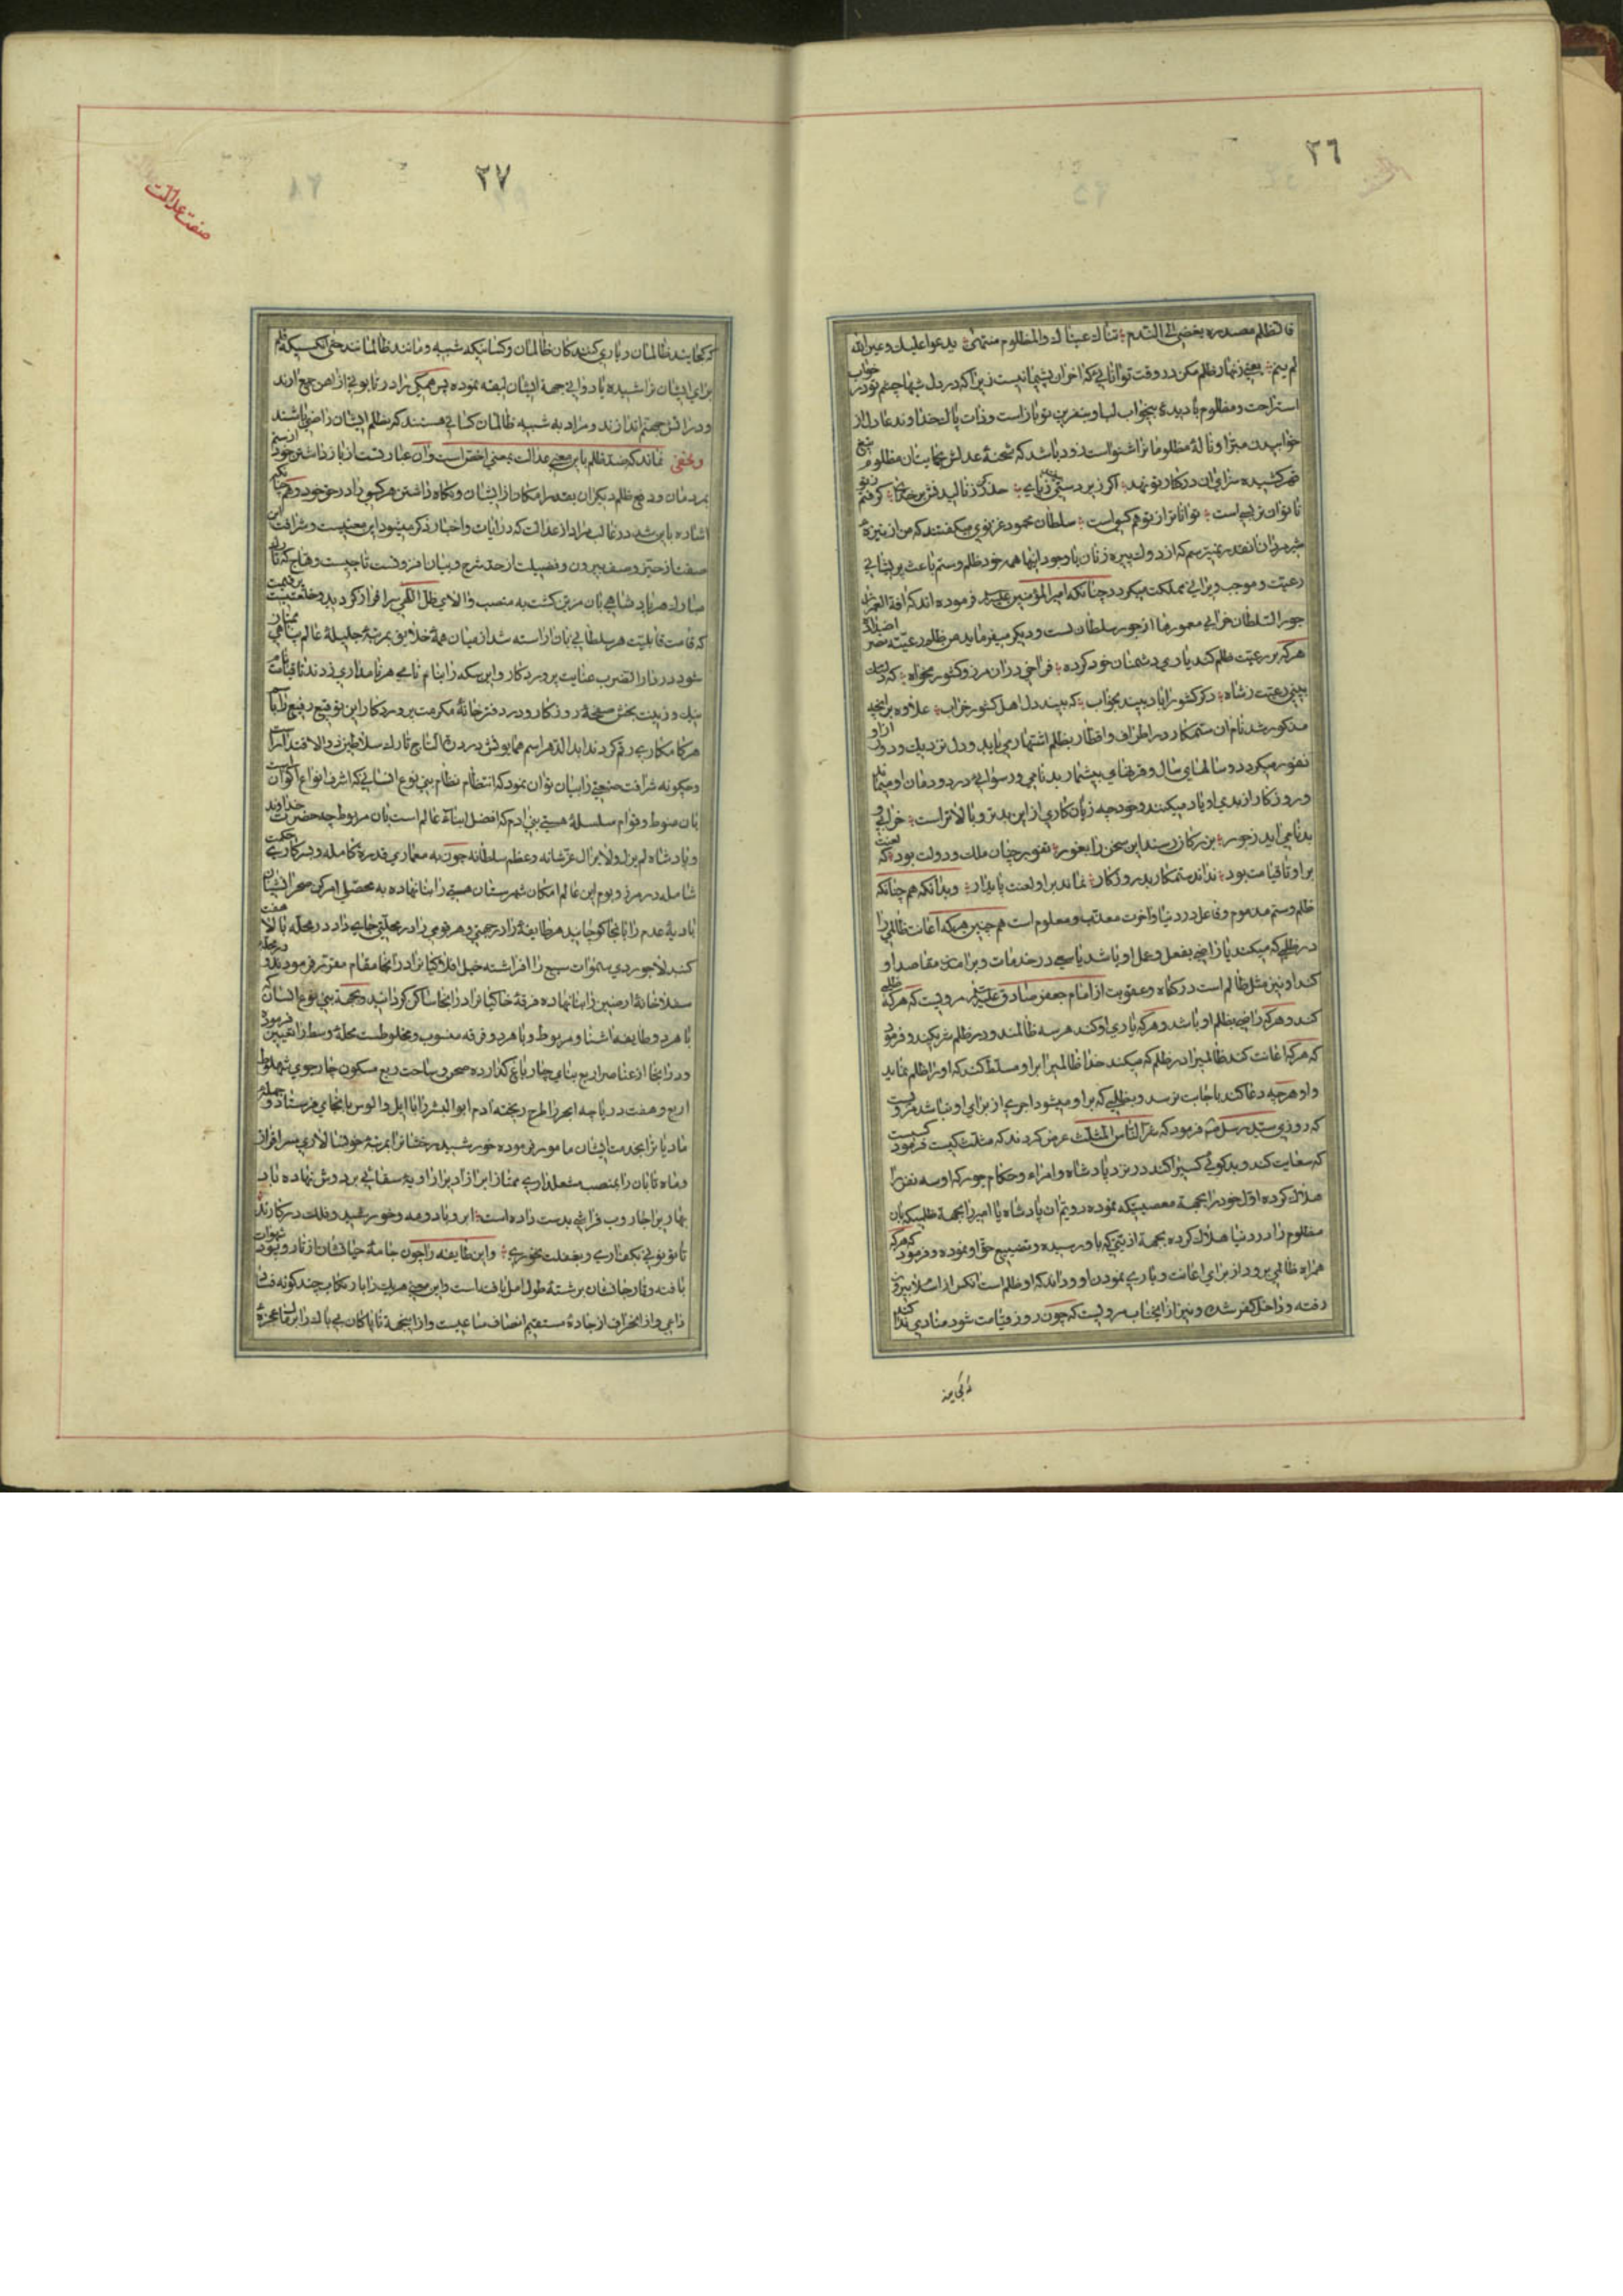 ٣٦
فالظلم مصدره یفضی الی الندم تنام عیناك والمظلوم منتبه یدعوا علیك وعین الله
لم ینم یعنی زنهار ظلم مکن در وقت توانائی که اخر ان پشیمانیست زیرا که در دل شبها چشم تو در خواب
استراحت و مظلوم با دیده بیخواب لب بنفرین تو باز است و ذات پاك خداوند عادل از
خوابیدن مبرا و نالهٔ مظلومانرا شنواست زود باشد که شحنهٔ عدلش بحمایت ان مظلوم تیغ
قهر کشیده سزای ان در کنار تو نهد اگر زیر دستی حذر کن ز نالیدنش بر خدای گرفتم ز تو
ناتوان تر بسی است تواناتر از تو هم کسی است سلطان محمود غزنوی میکفتند که من از نیزهٔ
شیر مردان انقدر نمیترسم که از دوك پیره زنان با وجود اینها همه خود ظلم و ستم باعث پریشانی
رعیت و موجب ویرانی مملکت میکردد چنانکه امیر المؤمنین علیه السلام فرموده اند که افة العمران
جور السلطان خرابی معمورها از جور سلطان است و دیکر میفرماید من ظلم رعیته نصر اضداده
هر که بر رعیت ظلم کند یاری دشمنان خود کرده فراخی در ان مرز و کشور مخواه که دلتنك
بینی رعیت ز شاه دکر کشور اباد بیند بخواب که بیند دل اهل کشور خراب علاوه بر انچه
مذکور شد نام ان ستمکار در اطراف و اقطار بظلم اشتهار می یابد و دل نزدیك و دور از او
نفور میکردد و سالهای سال و قرنهای بیشمار بدنامی و رسوائی در دودمان او میماند
و روزکار از بدی او یاد میکنند و خود چه زیان کاری از این بدتر و بالاتر است خرابی و
بدنامی اید ز جور بزرکان رسند این سخن را بغور نفور چنان ملك و دولت بود که لعنت
بر او تا قیامت بود نماند ستمکار بد روزکار بماند بر او لعنت پایدار و بدانکه هم چنانکه
ظلم و ستم مذموم و فاعل در دنیا و اخرت معذب و معلوم است هم چنین هر که اعانت ظالمی را
در ظلمی که میکند یا راضی بفعل و عمل او باشد یا سعی در خدمات و برامدن مقاصد او
کند او نیز مثل ظالم است در کناه و عقوبت از امام جعفر صادق علیه السلام مرویست که هر که ظلمی
کند و هر که راضی بظلم او باشد و هر که یاری او کند هر سه ظالمند و در ظلم شریکند و فرمود
که هر که اعانت کند ظالمیرا در ظلم که میکند خدا ظالمیرا بر او مسلط کند که او را ظلم نماید
و او هر چه دعا کند باجابت نرسد و بظلمی که بر او میشود اجری از برای او نباشد مرویست
که روزی سید رسل فرمود که شر الناس المثلث عرض کردند که مثلث کیست فرمود کسیست
که سعایت کند و بدکوئی کسیرا کند در نزد پادشاه و امراء و حکام جور که او سه نفر را
هلاك کرده اول خود را بجهة معصیتی که نموده دویم ان پادشاه یا امیر را بجهة ظلمیکه بان
مظلوم را در دنیا هلاك کرده بجهة اذیتی که باو رسیده و تضییع حق او نموده و فرمود که هر که
همراه ظالمی برود از برای اعانت و یاری نمودن او و داند که او ظلم است انکس از اسلام بیرون
رفته و داخل کفر شده و نیز از انجناب مرویست که چون روز قیامت شود منادی ندا کند
که کجایند
٣٧
صفت عدالت
که کجایند ظالمان و یاری کنندکان ظالمان و کسانیکه شبیه و مانند ظالمانند حتی انکسیکه قلم
برای ایشان تراشیده یا دواتی جهة ایشان لیقه نموده پس همکی را در تابوتی از اهن جمع ارند
و در اتش جهنم اندازند و مراد به شبیه ظالمان کسانی هستند که بظلم ایشان راضی باشند
و مخفی نماند که ضد ظلم باین معنی عدالت بمعنی اخص است و ان عبارتست از باز داشتن خود از ستم
بمردمان و دفع ظلم دیکران بقدر امکان از ایشان و نکاه داشتن هر کسی را در حق خود و هم چنانکه
اشاره باین شد در غالب مراد از عدالت که در ایات و اخبار ذکر میشود این معنیست و شرافت این
صفت از حیز وصف بیرون و فضیلت از حد شرح و بیان افزونست تاجیست وهاج که تارك
مبارك هر پادشاهی بان مزین کشت به منصب والای ظل اللهی سرافراز کردید و خلعتیست پر قیمت
که قامت قابلیت هر سلطانی بان اراسته شد از میان همهٔ خلایق بمرتبهٔ جلیلهٔ عالم پناهی ممتاز
شود در دار الضرب عنایت پروردکار و این سکه را بنام نامی هر نامداری زدند تا قیامت نام
نیك و زینت بخش صفحهٔ روزکار و در دفتر خانهٔ مکرمت پروردکار این توقیع رفیع را باسم
هر کامکاری رقم کردند ابد الدهر اسم همایونش درة التاج تارك سلاطین ذوالاقتدار است
و چکونه شرافت صفتی را بیان توان نمود که انتظام نظام بنی نوع انسانی که اشرف انواع اکوان است
بان منوط و قوام سلسلهٔ هستی بنی ادم که افضل ابناء عالم است بان مربوط چه حضرت خداوند
و پادشاه لم یزل و لا یزال عز شانه و عظم سلطانه چون به معماری قدرت کامله و سرکاری حکمت
شامله در مرز و بوم این عالم امکان شهرستان هستی را بنا نهاده به محصلی امر کن صحرانشینان
بادیهٔ عدم را بانجا کوچانید هر طایفهٔ را در جهتی و هر قومی را در محلتی جای داد در محلهٔ بالا هفت
کنبد لاجوردی سموات سبع را افراشته خیل افلاکیانرا در انجا مقام مقرر فرمودند و در محله
سفلا خانهٔ ارضین را بنا نهاده فرقهٔ خاکیانرا در انجا ساکن کردانید و بجهة بنی نوع انسان که
با هر دو طایفه اشنا و مربوط و با هر دو فرقه منسوب و مخلوطست محلهٔ وسط را تعیین فرمود
و در انجا از عناصر اربع بنای چار باغ کذارده صحن و ساحت ربع مسکون چار جوی
اربع و هفت دریاچه ابحر را طرح ریخته ادم ابو البشر را با ایل و الوس بانجا می فرستاد و جمله
مادیانرا بخدمت ایشان مامور فرموده خورشید رخشانرا بمرتبهٔ خوانسالاری سرافراز
و ماه تابان را بمنصب مشعلداری ممتاز ابر ازاد یرا راویهٔ سقائی بر دوش نهاده باد
بهاریرا جاروب فراشی بدست داده است ابر و باد و مه و خورشید و فلك در کارند
تا تو نانی بکف اری و بغفلت نخوری و این طایفه را چون جامهٔ حیاتشان از تار و پود شهوات
بافته و تار جانشان بر شتهٔ طول امل یافت است و این معنی هر یك را بارتکاب چند کونه فسا
داعی و از انحراف از جادهٔ مستقیم انصاف ساعیست و از اینجهة ناپاکان بی باك را بر قا عجزه